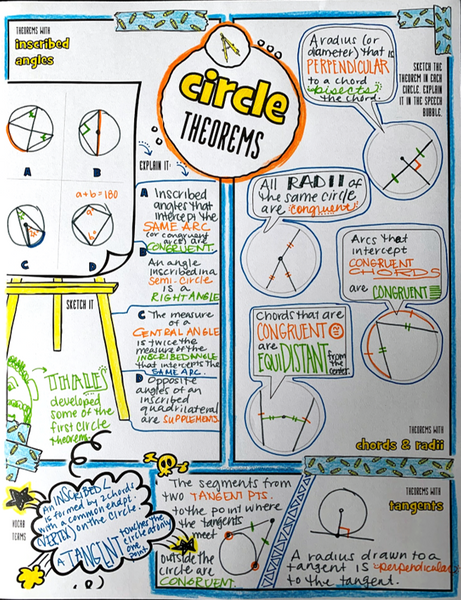 THEOREMS WITH
inscribed
angles
circle
THEOREMS
EXPLAIN IT:
A
B
a+b=180
a°
b°
C
D
SKETCH IT
A Inscribed
angles that
intercept the
SAME ARC
(or congruent
arcs) are
CONGRUENT.
B An angle
inscribed in a
semi-circle
is a
RIGHT ANGLE
C The measure
of a
CENTRAL ANGLE
is twice the
measure of the
INSCRIBED ANGLE
that intercepts the
SAME ARC.
D Opposite
angles of an
inscribed
quadrilateral
are SUPPLEMENTS
THALES
developed
some of the
first circle
theorems
A radius (or
diameter) that is
PERPENDICULAR
to a chord
bisects
the chord.
SKETCH THE
THEOREM IN EACH
CIRCLE. EXPLAIN
IT IN THE SPEECH
BUBBLE.
All RADII of
the same circle
are congruent
Arcs that
intercept
CONGRUENT
CHORDS
are CONGRUENT
Chords that are
CONGRUENT
are
EQUIDISTANT from
the
center.
THEOREMS WITH
chords & radii
VOCAB
TERMS
An INSCRIBED ∠
is formed by 2 chords
with a common endpt.
(VERTEX) on the circle.
A TANGENT touches the
circle at only
one
point.
The segments from
two TANGENT PTS.
to the point where
the tangents
meet
outside the
circle are
CONGRUENT.
THEOREMS WITH
tangents
A radius drawn to a
tangent is perpendicular
to the tangent.